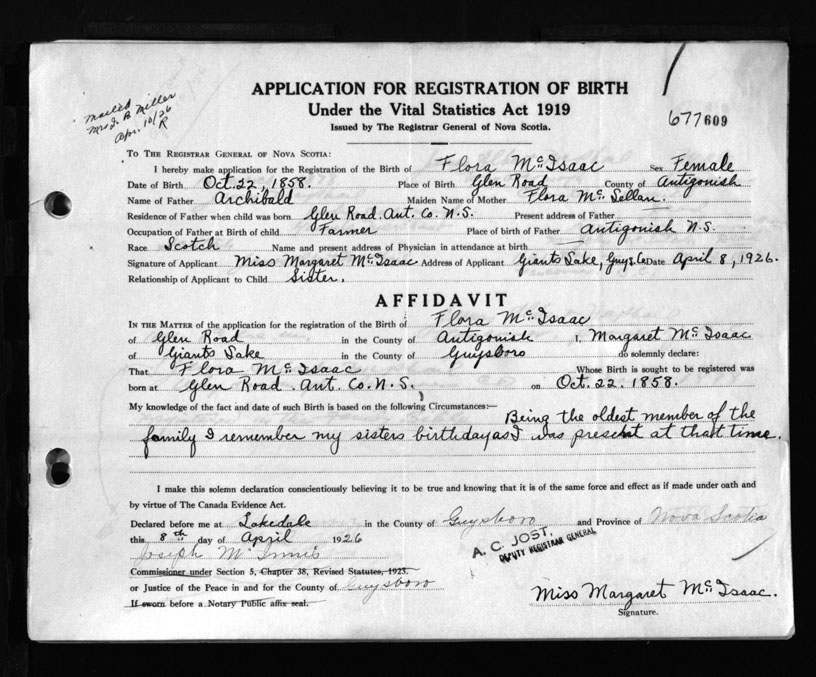 mailed
Mrs J. B Miller
Apr. 10/26
R
APPLICATION FOR REGISTRATION OF BIRTH
Under the Vital Statistics Act 1919
Issued by The Registrar General of Nova Scotia.
677609
To The Registrar General of Nova Scotia:
I hereby make application for the Registration of the Birth of Flora McIsaac Sex Female
Date of Birth Oct. 22, 1858. Place of Birth Glen Road County of Antigonish
Name of Father Archibald Maiden Name of Mother Flora Mc Lellan.
Residence of Father when child was born Glen Road. Ant. Co. N.S. Present address of Father
Occupation of Father at Birth of child Farmer Place of birth of Father Antigonish N.S.
Race Scotch Name and present address of Physician in attendance at birth
Signature of Applicant Miss Margaret McIsaac Address of Applicant Giants Lake, Guys. Co Date April 8, 1926.
Relationship of Applicant to Child Sister.
AFFIDAVIT
In the Matter of the application for the registration of the Birth of Flora McIsaac
of Glen Road in the County of Antigonish I, Margaret McIsaac
of Giants Lake in the County of Guysboro do solemnly declare:
That Flora McIsaac Whose Birth is sought to be registered was
born at Glen Road. Ant. Co. N.S. on Oct. 22. 1858.
My knowledge of the fact and date of such Birth is based on the following Circumstances:— Being the oldest member of the
family I remember my sisters birthday as I was present at that time.
I make this solemn declaration conscientiously believing it to be true and knowing that it is of the same force and effect as if made under oath and
by virtue of The Canada Evidence Act.
Declared before me at Lakedale in the County of Guysboro and Province of Nova Scotia
this 8th day of April 1926
A. C. JOST,
DEPUTY REGISTRAR GENERAL
Joseph McInnis
Commissioner under Section 5, Chapter 38, Revised Statutes, 1923.
or Justice of the Peace in and for the County of Guysboro
If sworn before a Notary Public affix seal.
Miss Margaret McIsaac.
Signature.